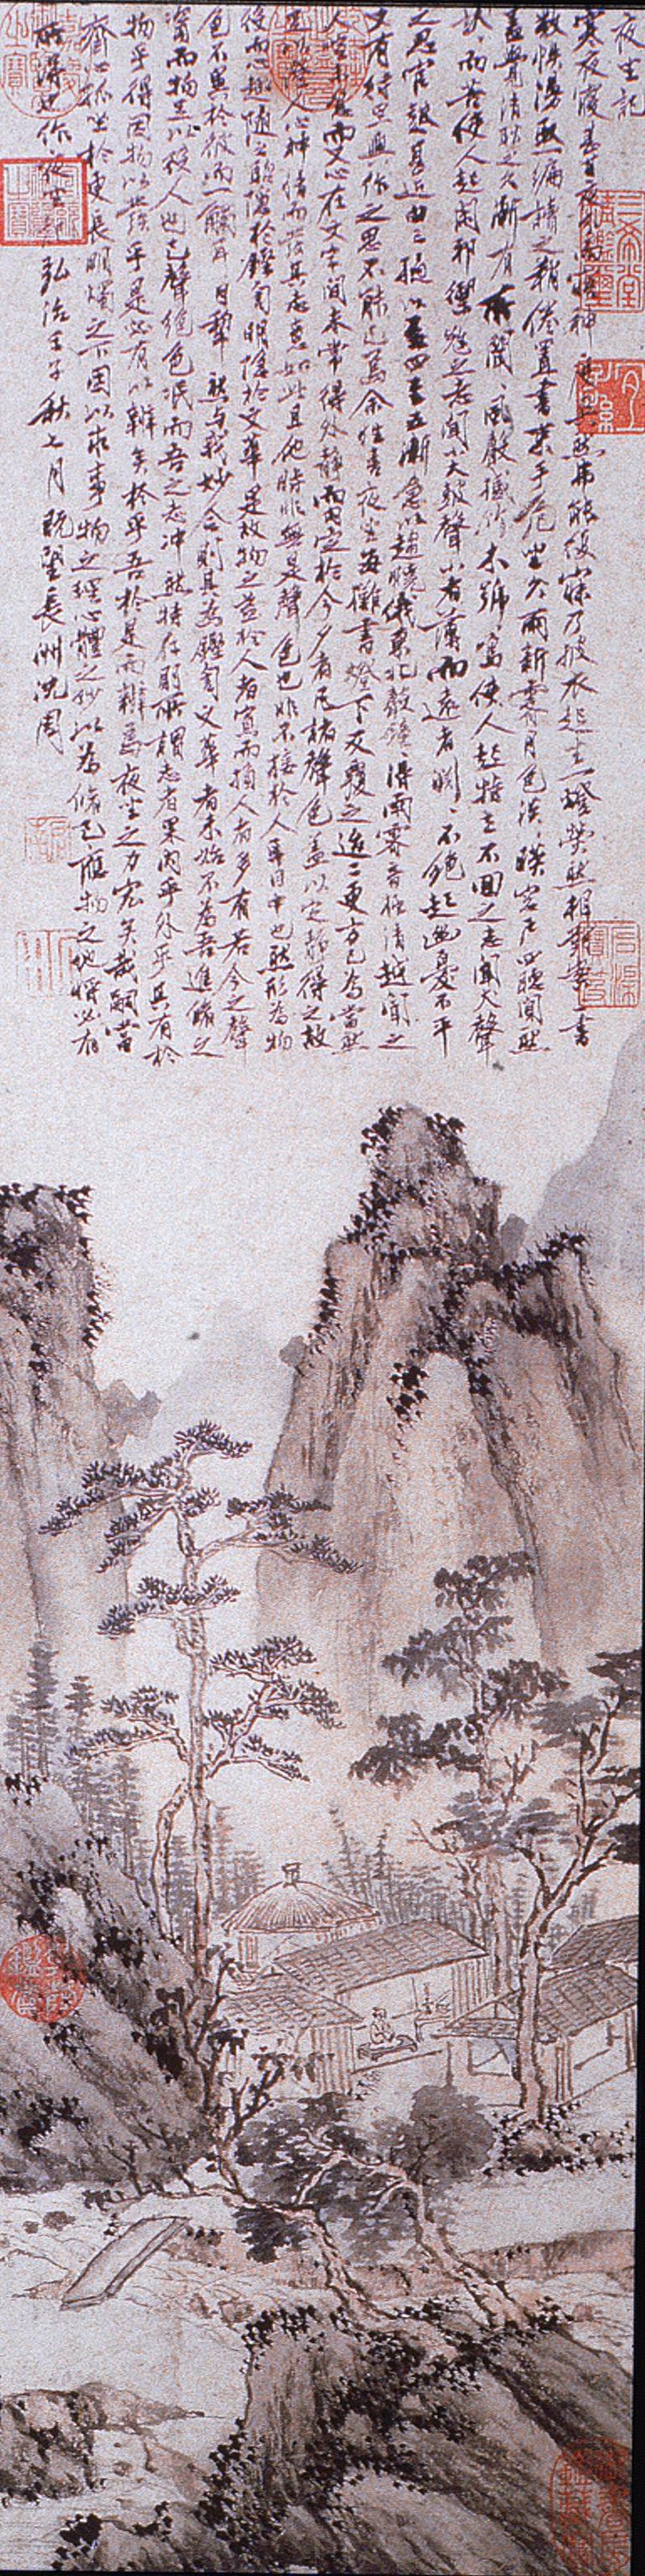 夜坐記
寒夜寢甚甘夜分而寤神度爽然弗能復寐乃披衣起坐一燈熒然相對案上書
數帙漫然編讀之稍倦置書束手危坐久雨新霽月色淡淡映窗戶四聽闃然
蓋覺清耿之久漸有所聞聞風聲撼竹木號號鳴使人起特立不回之志聞犬聲
狺狺而苦使人起閑邪禦寇之志聞小大鼓聲小者薄而遠者淵淵不絕起幽憂不平
之思官鼓甚近由三撾以至四至五漸急以趨曉俄東北聲鐘鐘得雨霽音極清越聞之
又有待旦興作之思不能已焉余性喜夜坐每攤書燈下反覆之迨二更方已為當然
人喧未息而又心在文字間未常得外靜而內定於今夕者凡諸聲色蓋以定靜得之故
足以澄人心神情而發其志意如此且他時非無是聲色也非不接於人耳目中也然形為物
役而心趣隨之聰隱於鏗訇明隱於文華是故物之益於人者寡而損人者多有若今之聲
色不異於彼而一觸耳目犁然與我妙合則其為鏗訇文華者未始不為吾進脩之
資而物足以役人也已聲絕色泯而吾之志沖然特存則所謂志者果內乎外乎其有於
物乎得因物以發乎是必有以辨矣於乎吾於是而辨焉夜坐之力宏矣哉嗣當
齋心孤坐於更長明燭之下因以求事物之理心體之妙以為脩己應物之地將必有
所得也作夜坐記弘治壬子秋七月既望長洲沈周
三希堂精鑑璽
宜子孫